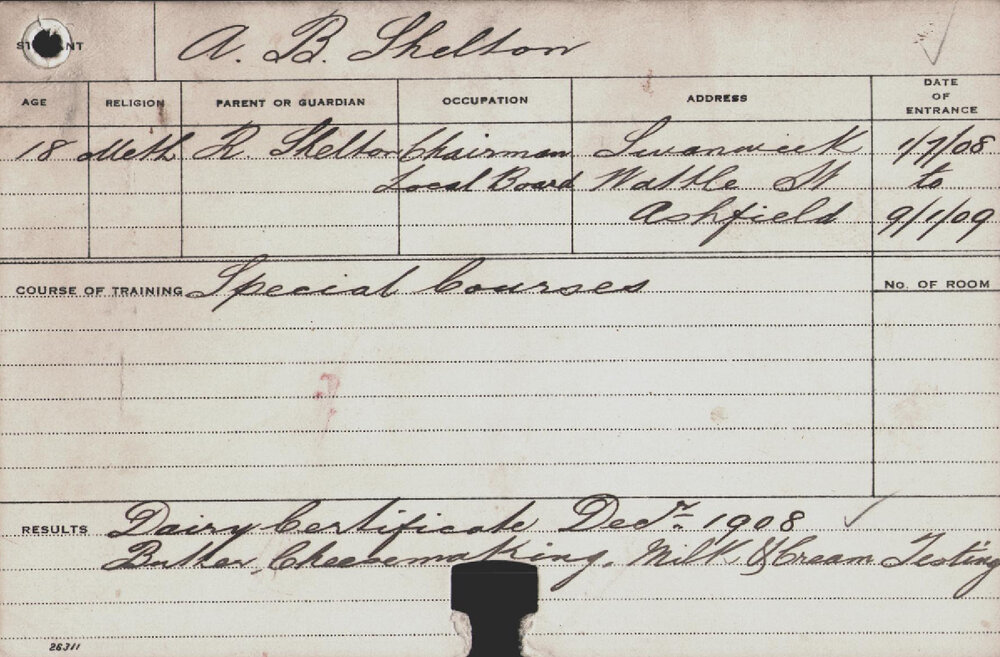 STUDENT A. B. Shelton
AGE RELIGION PARENT OR GUARDIAN OCCUPATION ADDRESS DATE OF ENTRANCE
18 Meth R. Shelton Chairman Swanwick 1/7/08
Local Board Wattle St to
Ashfield 9/1/09
COURSE OF TRAINING Special Courses No. OF ROOM
RESULTS Dairy Certificate Decr. 1908
Butter, Cheesemaking, Milk & Cream Testing
26311